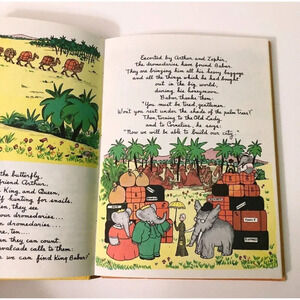 the butterfly,
friend Arthur,
King, and Queen,
hunting for snails.
they see
our dromedaries...
dromedaries
re, ten...
they can count.
cavalcade calls to them:
e we can find King Babar?"
Escorted by Arthur and Zephir,
the dromedaries have found Babar.
They are bringing him all his heavy baggage
and all the things which he had bought
out in the big world,
during his honeymoon.
Babar thanks them:
"You must be tired, gentlemen.
Won't you rest under the shade of the palm trees?"
Then, turning to the Old Lady
and to Cornelius, he says:
"Now we will be able to build our city."